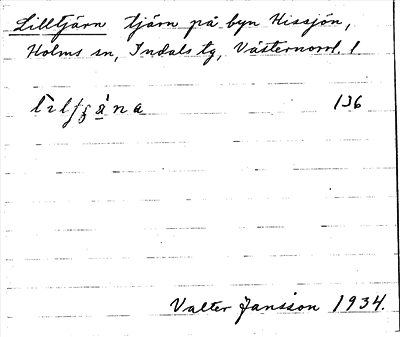 Lilltjärn tjärn på byn Hissjön,
Holms sn, Indals tg, Västernorrl. l
136
Valter Jansson 1934.